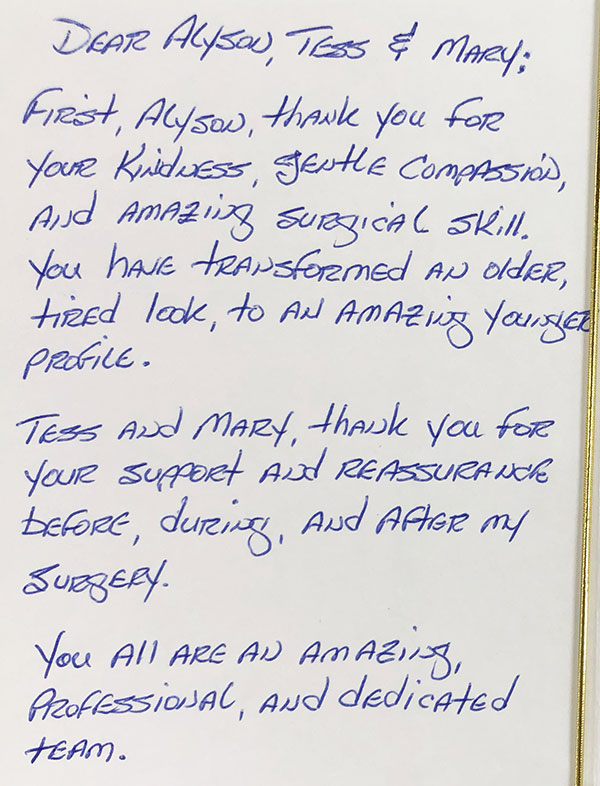 Dear Alyson, Tess & Mary;
First, Alyson, thank you for
your kindness, gentle compassion,
and amazing surgical skill.
You have transformed an older,
tired look, to an amazing younger
profile.
Tess and Mary, thank you for
your support and reassurance
before, during, and after my
surgery.
You all are an amazing,
professional, and dedicated
team.